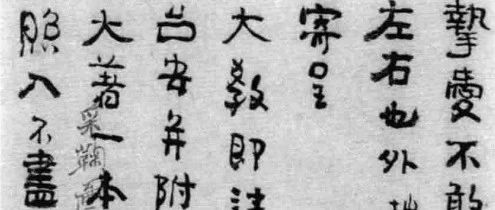 摯愛不敢
左右也外
寄呈
大教即請
台安并附
大著一本
照入不盡
采鞠